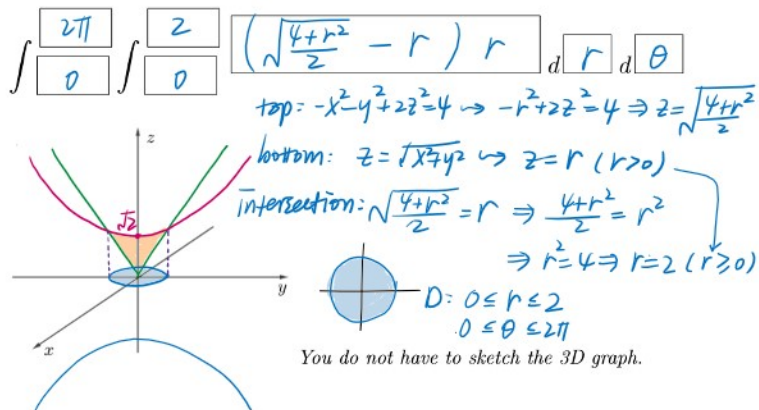 ∫_0^{2π} ∫_0^2 (√((4+r²)/2) − r) r d r d θ
top: -x²-y²+2z²=4 ↝ -r²+2z²=4 ⇒ z=√((4+r²)/2)
z
bottom: z=√(x²+y²) ↝ z=r (r>0)
√2
intersection: √((4+r²)/2) = r ⇒ (4+r²)/2 = r²
⇒ r²=4 ⇒ r=2 (r≥0)
y
D: 0≤r≤2
0≤θ≤2π
x
You do not have to sketch the 3D graph.